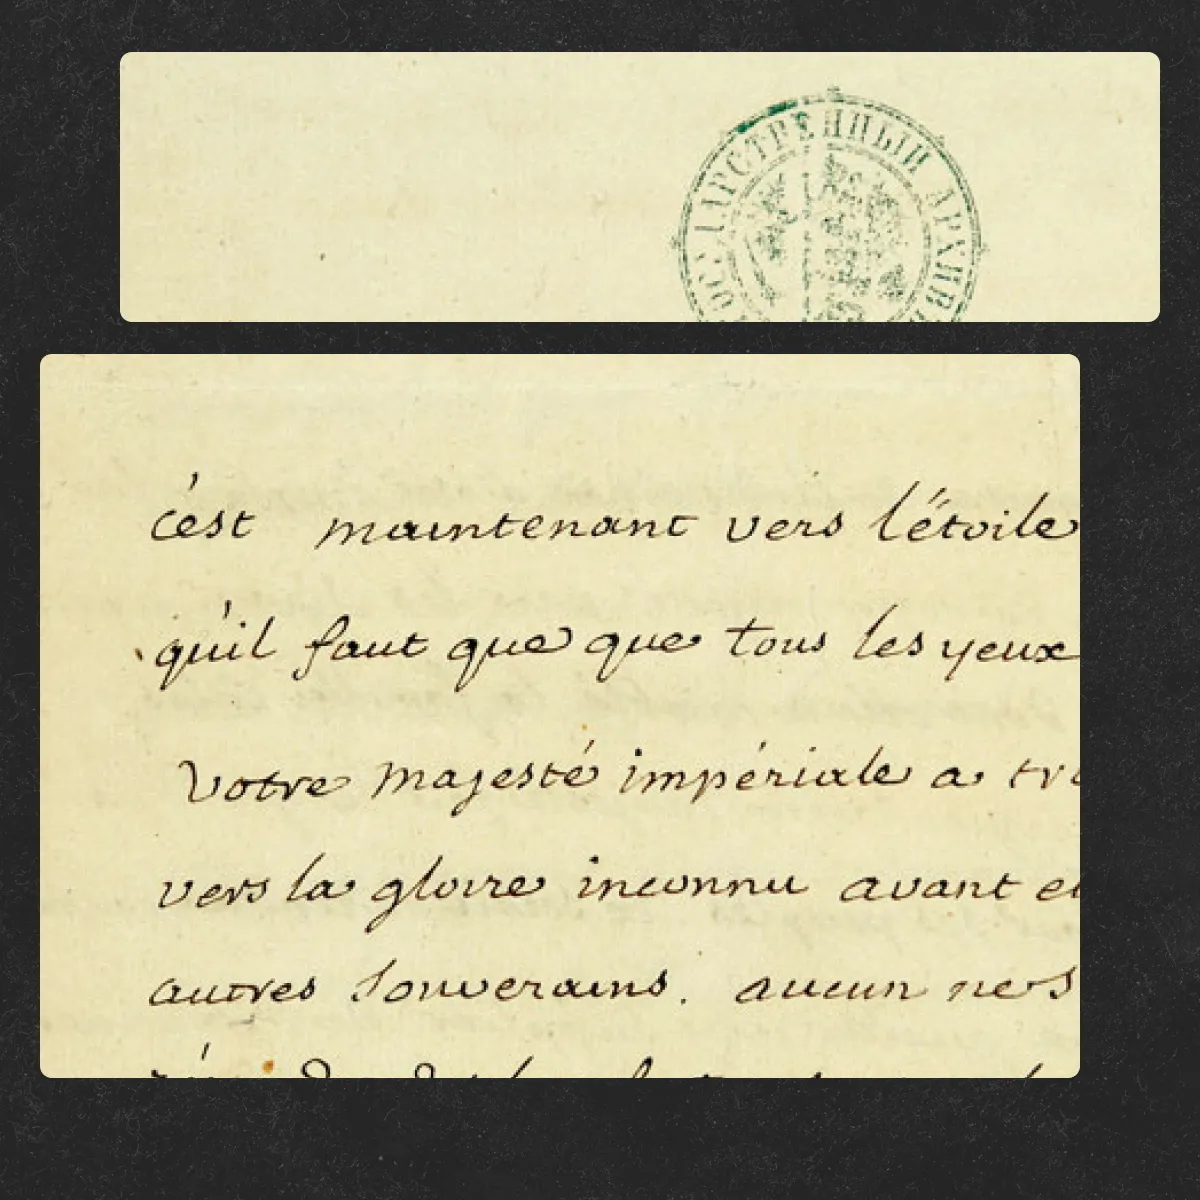 ГОСУДАРСТВЕННЫЙ АРХИВЪ
c'est maintenant vers l'étoile
qu'il faut que que tous les yeux
Votre majesté impériale a
vers la gloire inconnu avant
autres souverains. aucun ne s